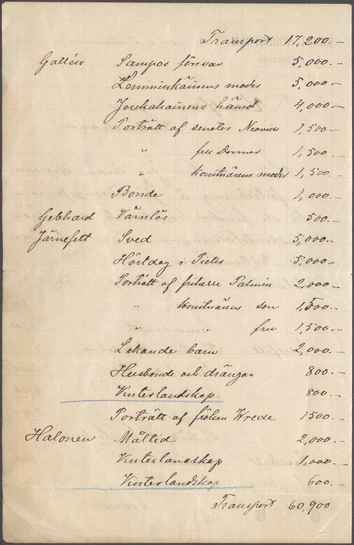 Transport 17,200.-
Gallén Sampos försvar 5,000.-
Lemminkäinens moder 5,000-
Joukahainens hämnd 4,000-
Porträtt af senator 1,500.-
" fru 1,500.-
" Konstnärens moder 1,500
Bonde 1,000.-
Gebhard Värnlös 500.-
Järnefelt Sved 5,000.-
Höstdag i Pielis 5,000.-
Porträtt af fröken Palmén 2,000.-
" Konstnärens son 1,500.-
" " fru 1,500.-
Lekande barn 2,000.-
Husbonde och drängar 800.-
Vinterlandskap 800.-
Porträtt af fröken Wrede 1500.-
Halonen Måltid 2,000.-
Vinterlandskap 1,000.-
Vinterlandskap 600.-
Transport 60,900